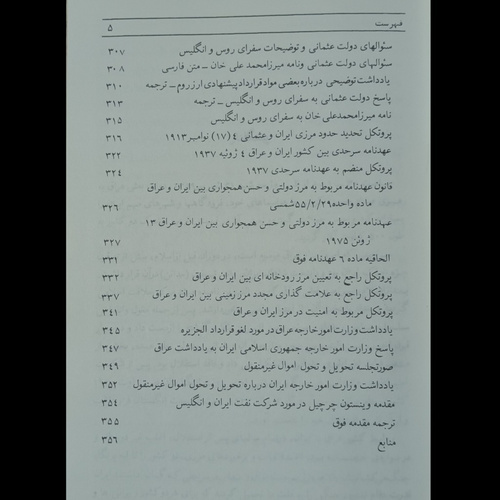 فهرست ۵
سئوالهای دولت عثمانی و توضیحات سفرای روس و انگلیس ۳۰۷
سئوالهای دولت عثمانی ونامه میرزامحمد علی خان ــ متن فارسی ۳۰۸
یادداشت توضیحی درباره بعضی مواد قرارداد پیشنهادی ارز روم ــ ترجمه ۳۱۰
پاسخ دولت عثمانی به سفرای روس و انگلیس ــ ترجمه ۳۱۳
نامه میرزامحمدعلی خان به سفرای روس و انگلیس ۳۱۵
پروتکل تحدید حدود مرزی ایران و عثمانی ٤ (۱۷) نوامبر ۱۹۱۳ ۳۱۶
عهدنامه سرحدی بین کشور ایران و عراق ٤ ژوئیه ۱۹۳۷ ۳۲۲
پروتکل منضم به عهدنامه سرحدی ۱۹۳۷ ۳۲٤
قانون عهدنامه مربوط به مرز دولتی و حسن همجواری بین ایران و عراق
ماده واحده ۵۵/۲/۲۹ شمسی ۳۲۶
عهدنامه مربوط به مرز دولتی و حسن همجواری بین ایران و عراق ۱۳
ژوئن ۱۹۷۵ ۳۲۷
الحاقیه ماده ۶ عهدنامه فوق ۳۳۱
پروتکل راجع به تعیین مرز رودخانه ای بین ایران و عراق ۳۳۲
پروتکل راجع به علامت گذاری مجدد مرز زمینی بین ایران و عراق ۳۳۷
پروتکل مربوط به امنیت در مرز ایران و عراق ۳٤۱
یادداشت وزارت امور خارجه عراق در مورد لغو قرارداد الجزیره ۳٤۵
پاسخ وزارت امور خارجه جمهوری اسلامی ایران به یادداشت عراق ۳٤۷
صورتجلسه تحویل و تحول اموال غیرمنقول ۳٤۹
یادداشت وزارت امور خارجه ایران درباره تحویل و تحول اموال غیرمنقول ۳۵۲
مقدمه وینستون چرچیل در مورد شرکت نفت ایران و انگلیس ۳۵٤
ترجمه مقدمه فوق ۳۵۵
منابع ۳۵۶